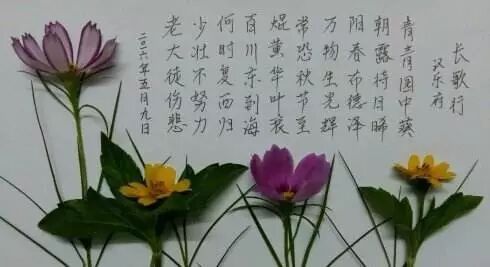 长歌行
汉乐府
青青园中葵
朝露待日晞
阳春布德泽
万物生光辉
常恐秋节至
焜黄华叶衰
百川东到海
何时复西归
少壮不努力
老大徒伤悲
二〇一六年五月九日